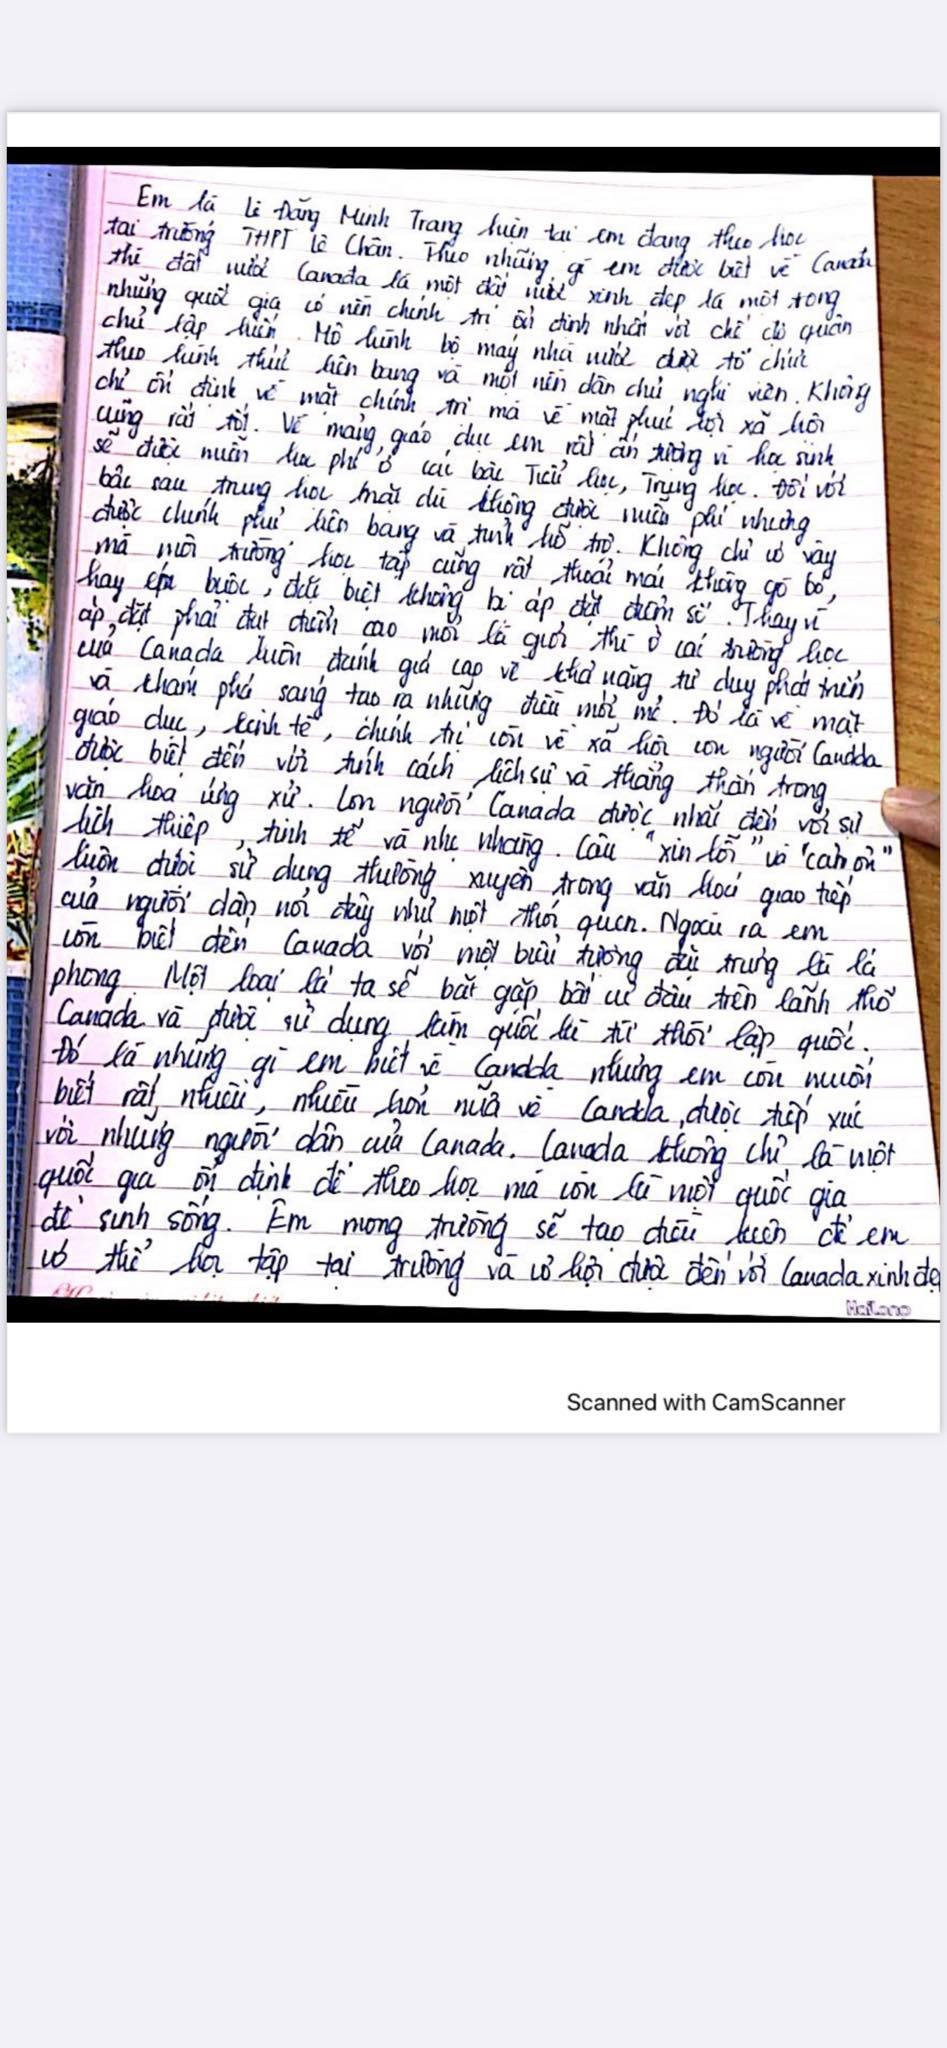 Em là Lê Đặng Minh Trang hiện tại em đang theo học
tại trường THPT Lê Chân. Theo những gì em được biết về Canada
thì đất nước Canada là một đất nước xinh đẹp là một trong
những quốc gia có nền chính trị ổn định nhất với chế độ quân
chủ lập hiến. Mô hình bộ máy nhà nước được tổ chức
theo hình thức liên bang và một nền dân chủ nghị viện. Không
chỉ ổn định về mặt chính trị mà về mặt phúc lợi xã hội
cũng rất tốt. Về mảng giáo dục em rất ấn tượng vì học sinh
sẽ được miễn học phí ở các bậc Tiểu học, Trung học. Đối với
bậc sau trung học mặc dù không được miễn phí nhưng
được chính phủ liên bang và tỉnh hỗ trợ. Không chỉ có vậy
mà môi trường học tập cũng rất thoải mái không gò bó,
hay ép buộc, đặc biệt không bị áp đặt điểm số. Thay vì
áp đặt phải đạt điểm cao mới là giỏi thì ở các trường học
của Canada luôn đánh giá cao về khả năng tư duy phát triển
và khám phá sáng tạo ra những điều mới mẻ. Đó là về mặt
giáo dục, kinh tế, chính trị còn về xã hội con người Canada
được biết đến với tính cách lịch sự và thẳng thắn trong
văn hoá ứng xử. Con người Canada được nhắc đến với sự
lịch thiệp, tinh tế và nhẹ nhàng. Câu "xin lỗi" và "cảm ơn"
luôn được sử dụng thường xuyên trong văn hoá giao tiếp
của người dân nơi đây như một thói quen. Ngoài ra em
còn biết đến Canada với một biểu tượng đặc trưng là lá
phong. Một loại lá ta sẽ bắt gặp bất cứ đâu trên lãnh thổ
Canada và được sử dụng làm quốc kì từ thời lập quốc.
Đó là những gì em biết về Canada nhưng em còn muốn
biết rất nhiều, nhiều hơn nữa về Canada, được tiếp xúc
với những người dân của Canada. Canada không chỉ là một
quốc gia ổn định để theo học mà còn là một quốc gia
để sinh sống. Em mong trường sẽ tạo điều kiện để em
có thể học tập tại trường và cơ hội được đến với Canada xinh đẹ
HaiLong
Scanned with CamScanner